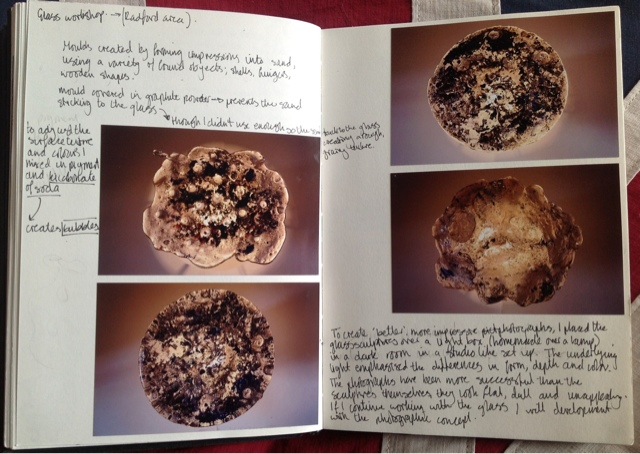 Glass workshop → (Radford area).
Moulds created by forming impressions into sand,
using a variety of found objects; shells, fingers,
wooden shapes.
mould covered in graphite powder → prevents the sand
sticking to the glass
though I didn't use enough so the
to adjust the
surface
and colours I
mixed in pigment
and bicarbonate
of soda
creates bubbles
to the glass
creating a rough,
grainy texture.
To create 'better', more impressive photographs, I placed the
glass sculptures over a light box (homemade over a lamp)
in a dark room in a studio like set up. The underlying
light emphasised the differences in form, depth and colour.
The photographs have been more successful than the
sculptures themselves they look flat, dull and unappealing.
If I continue working with the glass I will development
with the photographic concept.